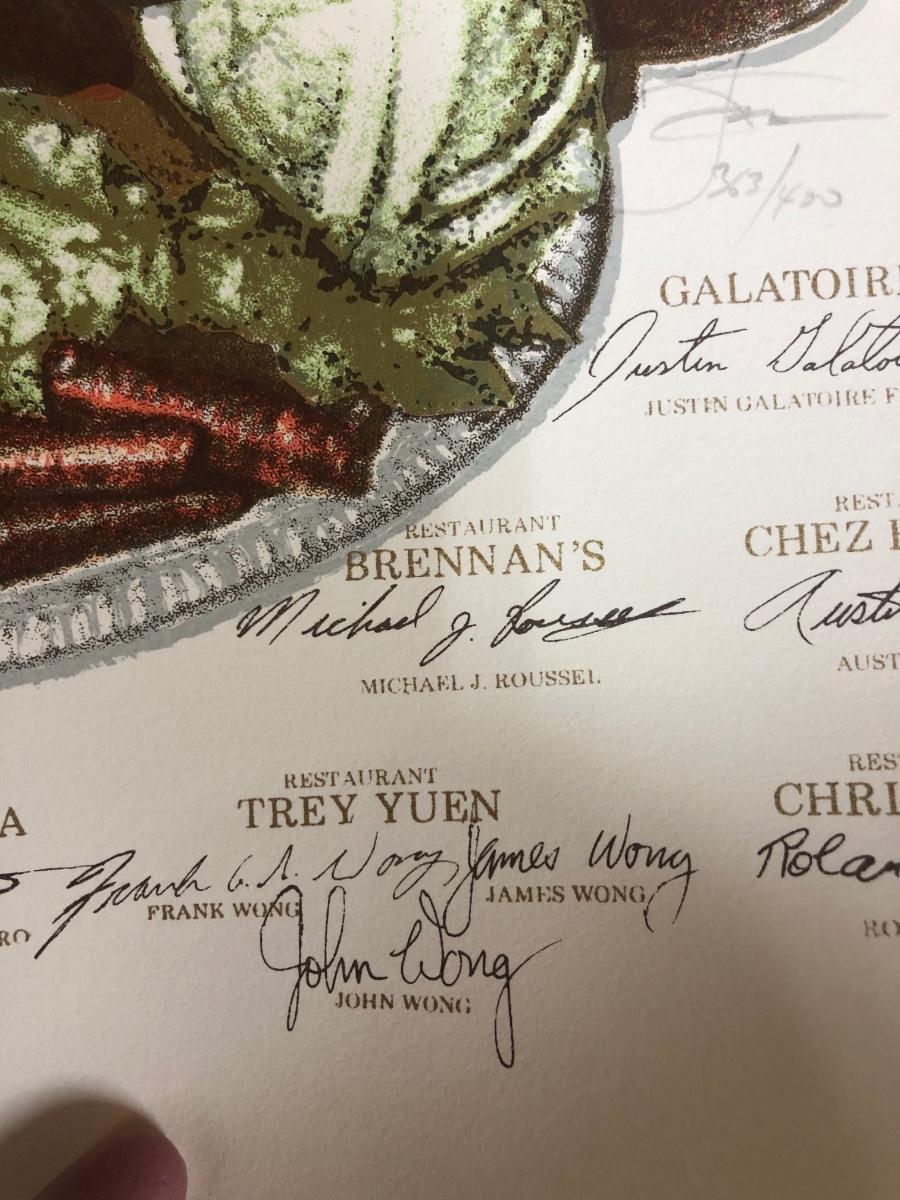 363/400
GALATOIRE
Justin Galatoi
JUSTIN GALATOIRE F
RESTAURANT
BRENNAN'S
Michael J. Roussel
MICHAEL J. ROUSSEL
REST
CHEZ
Austi
AUST
A
RO
RESTAURANT
TREY YUEN
Frank G. A. Wong James Wong
FRANK WONG JAMES WONG
John Wong
JOHN WONG
RES
CHRI
Rolan
RO